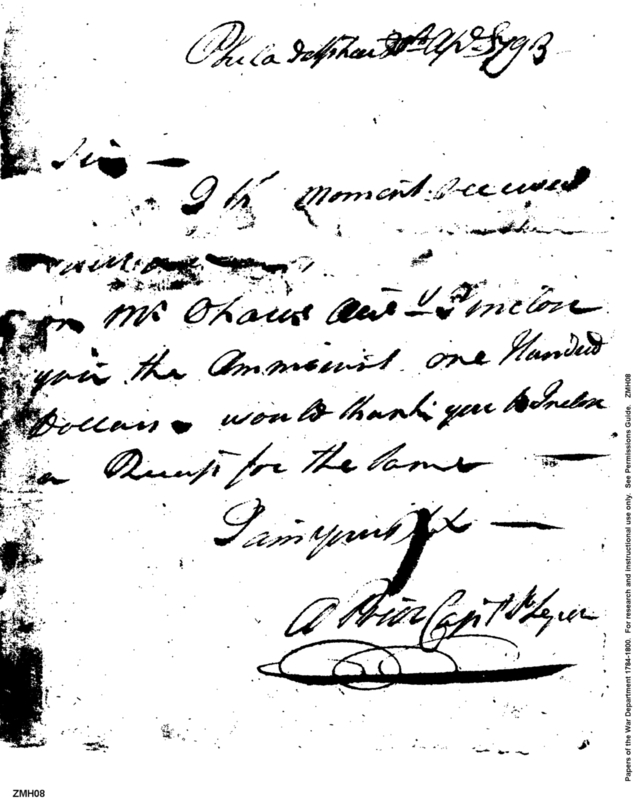 Philadelphia 30th Apr. 1793
Sir —
I th moment received
on Mr Oharas
you the Ammount one Hundred
Dollars would thank you to Inclose
a Receipt for the same —
I am yours &c —
A Prior Capt
Papers of the War Department 1784-1800. For research and instructional use only. See Permissions Guide. ZMH08
ZMH08